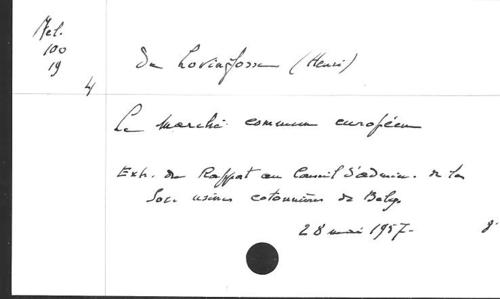 Mel.
100
19
4
De Lovinfosse (Henri)
Le Marché commun européen
Extr. du Rapport au Conseil d'admin. de la
Soc. usines cotonnières de Belg.
28 mai 1957.
8°